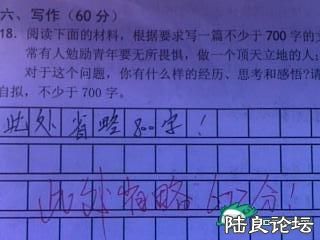 六、写作（60 分）
18. 阅读下面的材料，根据要求写一篇不少于 700 字的文
常有人勉励青年要无所畏惧，做一个顶天立地的人；
对于这个问题，你有什么样的经历、思考和感悟?请
自拟，不少于 700 字。
此处省略800字！
此处省略 分！
陆良论坛